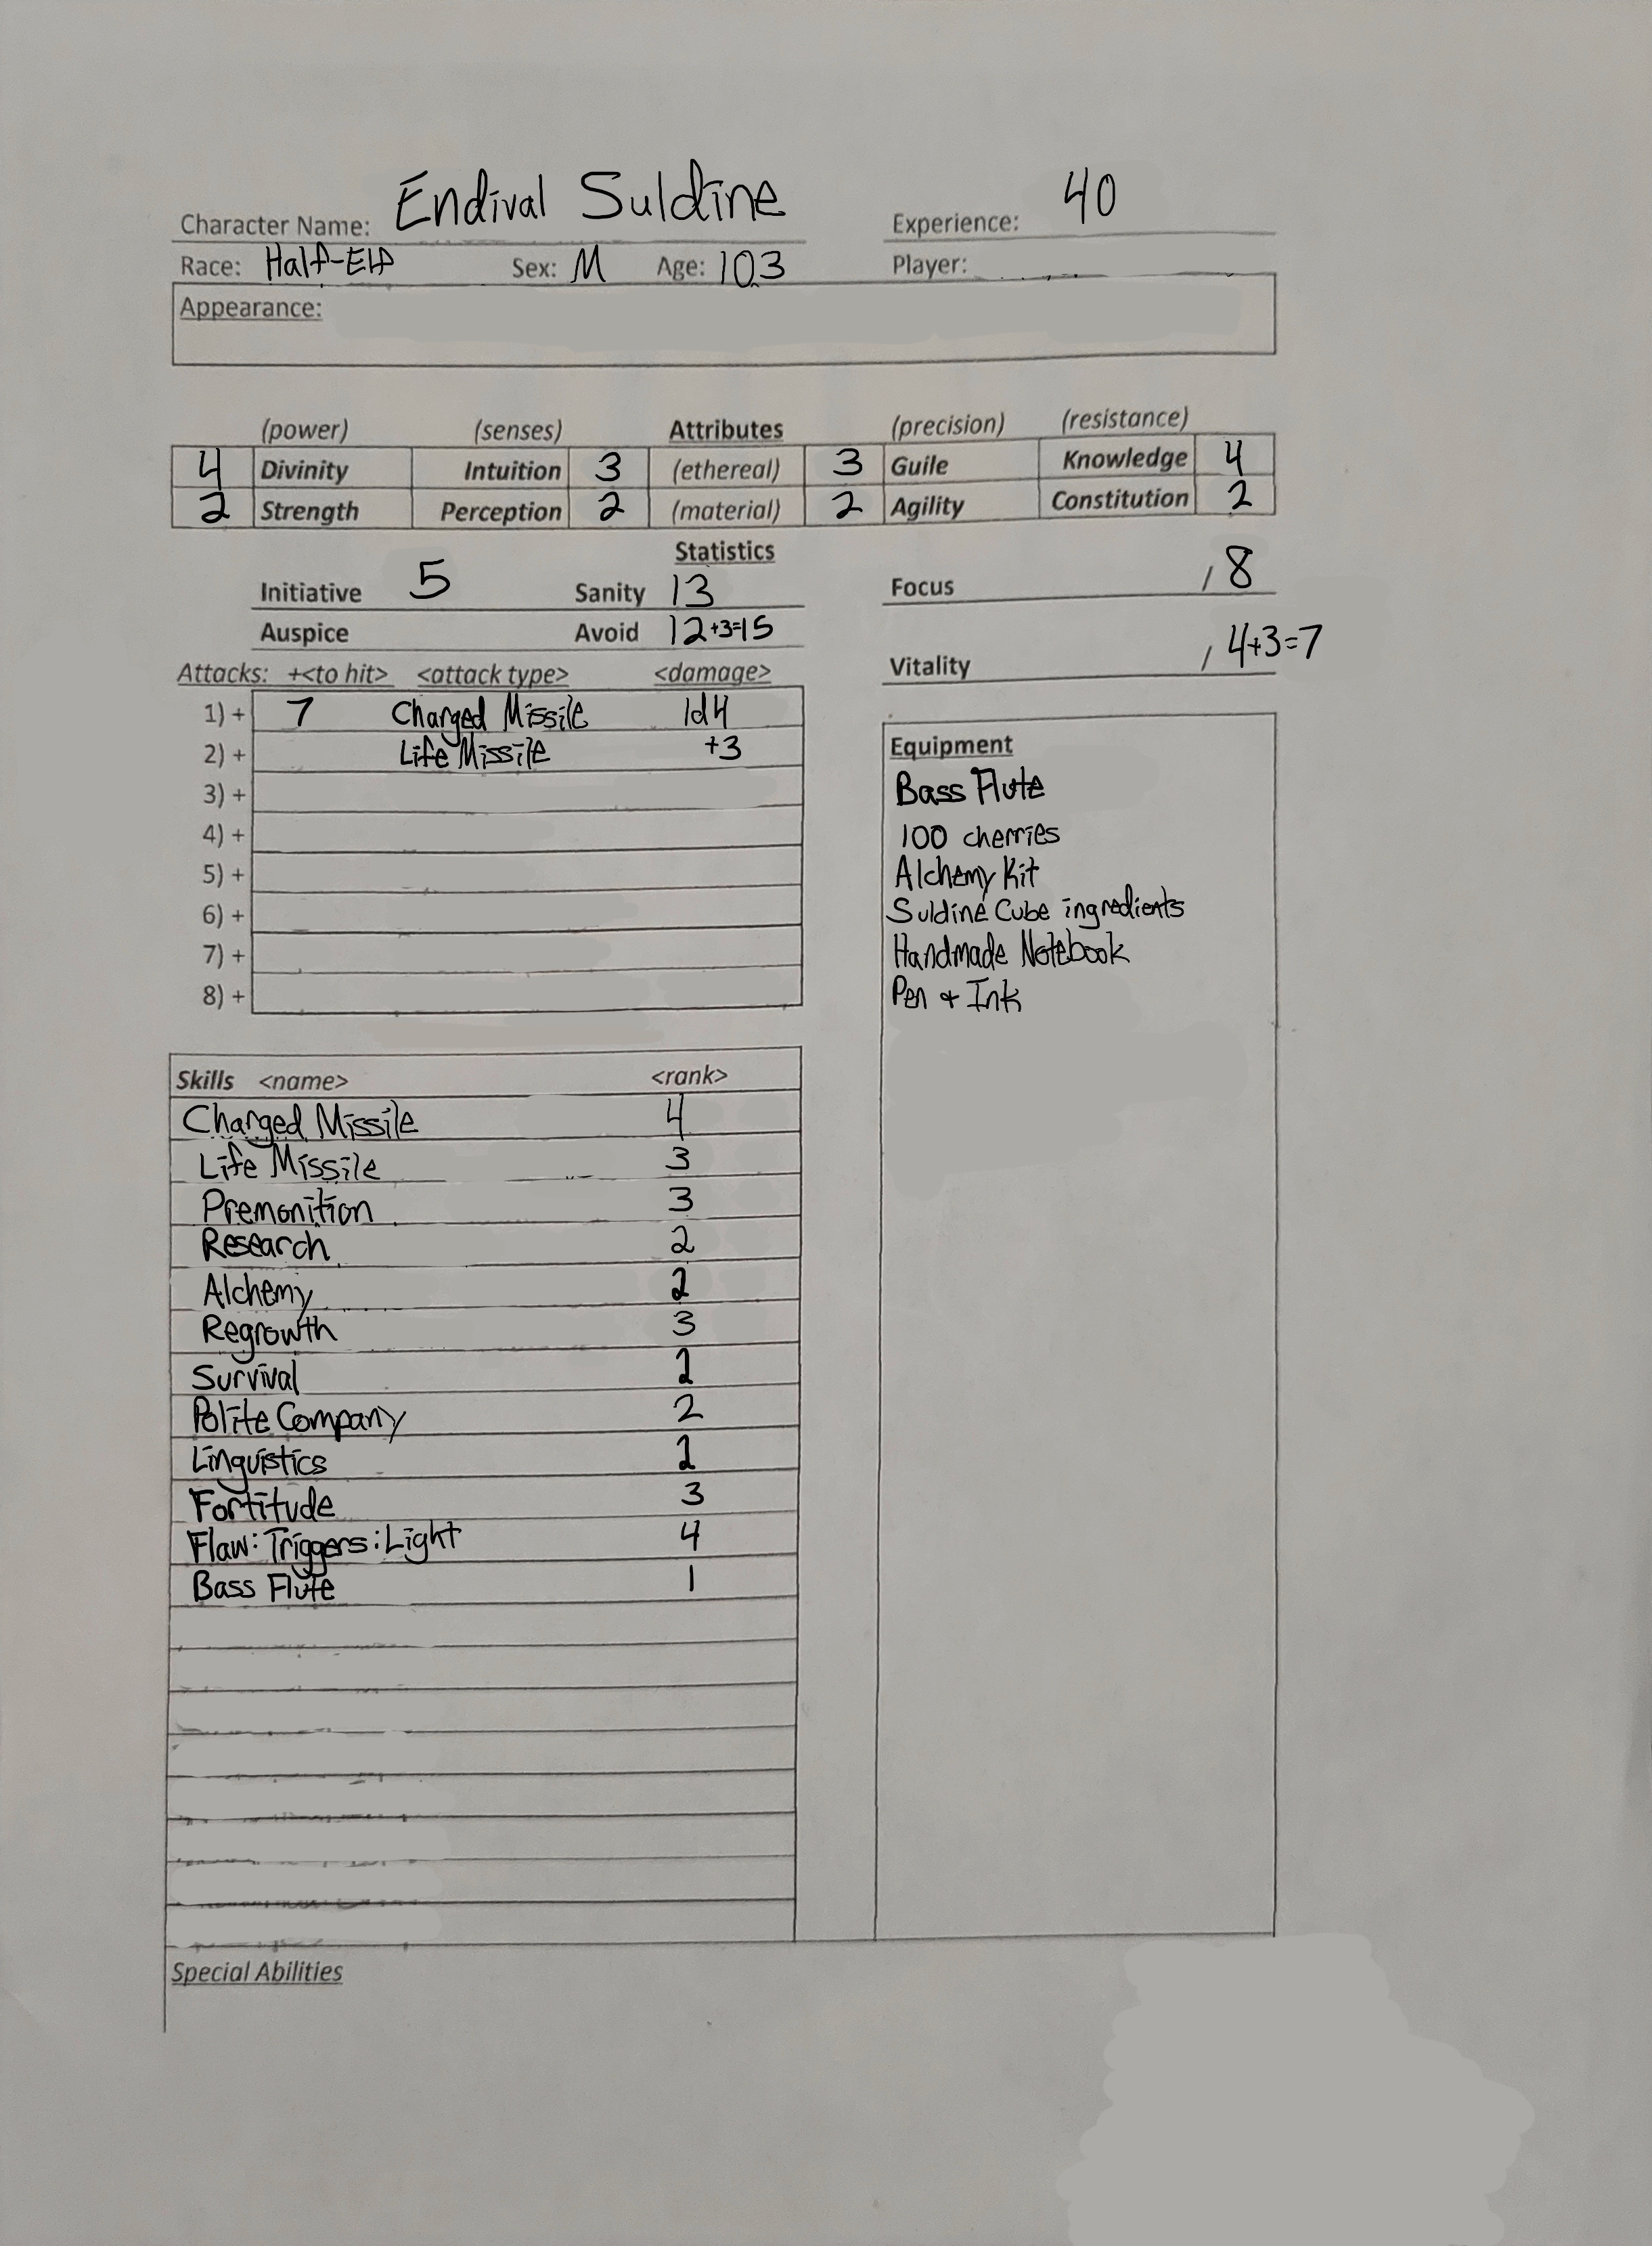 Character Name: Endival Suldine Experience: 40
Race: Half-Elf Sex: M Age: 103 Player:
Appearance:
(power) (senses) Attributes (precision) (resistance)
4 Divinity Intuition 3 (ethereal) 3 Guile Knowledge 4
2 Strength Perception 2 (material) 2 Agility Constitution 2
Statistics
Initiative 5 Sanity 13 Focus / 8
Auspice Avoid 12+3=15
Vitality / 4+3=7
Attacks: +<to hit> <attack type> <damage>
1) + 7 Charged Missile 1d4
2) + Life Missile +3
3) +
4) +
5) +
6) +
7) +
8) +
Equipment
Bass Flute
100 cherries
Alchemy Kit
Suldine Cube ingredients
Handmade Notebook
Pen + Ink
Skills <name> <rank>
Charged Missile 4
Life Missile 3
Premonition 3
Research 2
Alchemy 2
Regrowth 3
Survival 2
Polite Company 2
Linguistics 2
Fortitude 3
Flaw: Triggers: Light 4
Bass Flute 1
Special Abilities